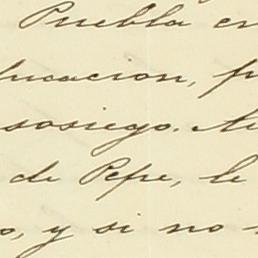 Puebla en
ducacion, p
sosiego. Au
de Pepe, le
o, y si no